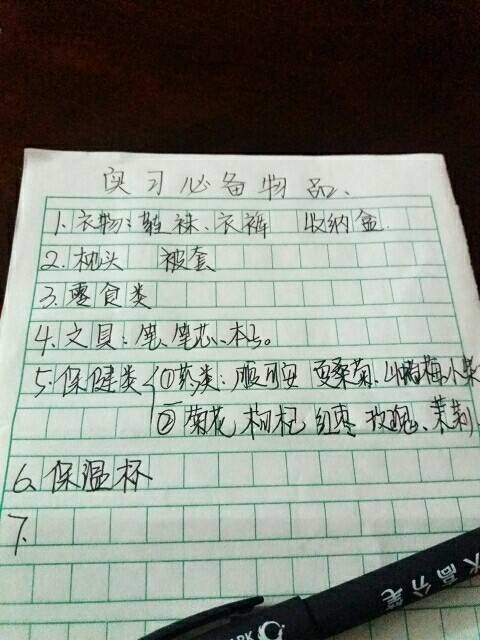 实习必备物品、
1、衣物：鞋 袜、衣裤 收纳盒
2、枕头 被套
3、零食类
4、文具：笔、笔芯、本子。
5、保健类 ①药类：服可安 夏桑菊、小柴
② 菊花 枸杞 红枣 玫瑰、茉莉
6、保温杯
7、
大高分笔